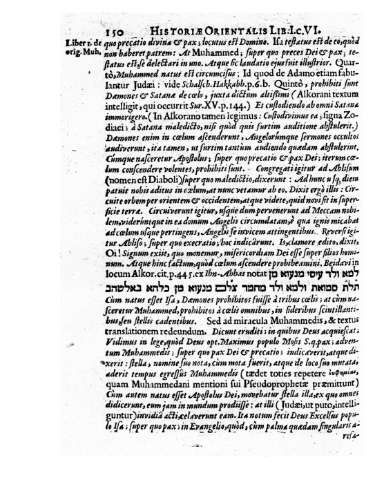 150 HISTORIÆ ORIENTALIS LIB: I. C. VI.
Liber 2. de orig. Muh.
quo precatio divina & pax; locutus est Domino. Isa testatus est de eo, quod
non haberet patrem: At Muhammed; super quo preces Dei & pax; te-
status est se delectari in uno. Atque sic laudatio ejus fuit illustrior. Quar-
tò, Muhammed natus est circumcisus; Id quod de Adamo etiam fabu-
lantur Judæi: vide Schalsch. Hakkabb. p. 6. b. Quintò, prohibiti sunt
Dæmones & Satanæ de cœlo, juxta dictum altissimi (Alkorani textum
intelligit, qui occurrit Sur. XV. p. 144.) Et custodiendo ab omni Satana
immorigera. (In Alkorano tamen legimus: Custodivimus ea, signa Zo-
diaci, à Satana maledicto, nisi quid quis furtim auditione abstulerit.)
Dæmones enim in cœlum ascenderunt, Angelorumque sermones occultos
audiverunt, ita tamen, ut furtim tantum audiendo quædam abstulerint.
Cumque nasceretur Apostolus; super quo precatio & pax Dei; iterum cœ-
lum conscendere volentes, prohibiti sunt. Congregati igitur ad Ablisum
(nomen est Diaboli) super quo maledictio, dixerunt: Ad hunc usq; diem
patuit nobis aditus in cœlum, at nunc vetamur ab eo. Dixit ergò illi: Cir-
cuite orbem per orientem & occidentem, atque videte, quid novi sit in super-
ficie terræ. Circuiverunt igitur, usque dum pervenerunt ad Meccam nobi-
lem, videruntque ibidem domum ab Angelis circumdatam, è qua ignis micabat
ad cœlum usque pertingens, Angelis se invicem attingentibus. Reversi igi-
tur Abliso, super quo execratio, hoc indicârunt. Is, clamore edito, dixit,
Oi! Signum existit, quo monemur, misericordiam Dei esse super filios homi-
num. Atque hinc factum, quòd cœlum ascendere prohibeamini. Beidavi in
locum Alkor. cit. p. 445. ex Ibn-Abbas notat למא ולד עיסי מנעוא מן
תלת סמואת ולמא ולד מחמד צלעם מנעוא מן כלהא באלשהב
Cum natus esset Isa, Dæmones prohibitos fuisse à tribus cœlis: at cum na-
sceretur Muhammed, prohibitos à cœlis omnibus, in sideribus scintillanti-
bus, seu stellis cadentibus. Sed ad miracula Muhammedis, & textus
translationem redeundum. Dicunt eruditi: in quibus Deus acquiescat.
Vidimus in lege, quod Deus opt. Maximus populo Mosis S. q. pax; adven-
tum Muhammedis; super quo pax Dei & precatio; indicaverit, atque di-
xerit: stella, nomine suo nota, cum mota fuerit, atque de loco suo mutata,
aderit tempus egressus Muhammedis (tædet toties repetere
quam Muhammedani mentioni sui Pseudoprophetæ præmittunt)
Cum autem natus esset Apostolus Dei, movebatur stella illa, ex quo omnes
didicerunt, eum jam in mundum prodiisse: at illi (Judæi, ut puto, intelli-
guntur) invidiâ acti, celaverunt eam. Ita notum fecit Deus Excelsus popu-
lo Isa; super quo pax; in Evangelio, quòd, cum palma quædam singularis a-
resa-